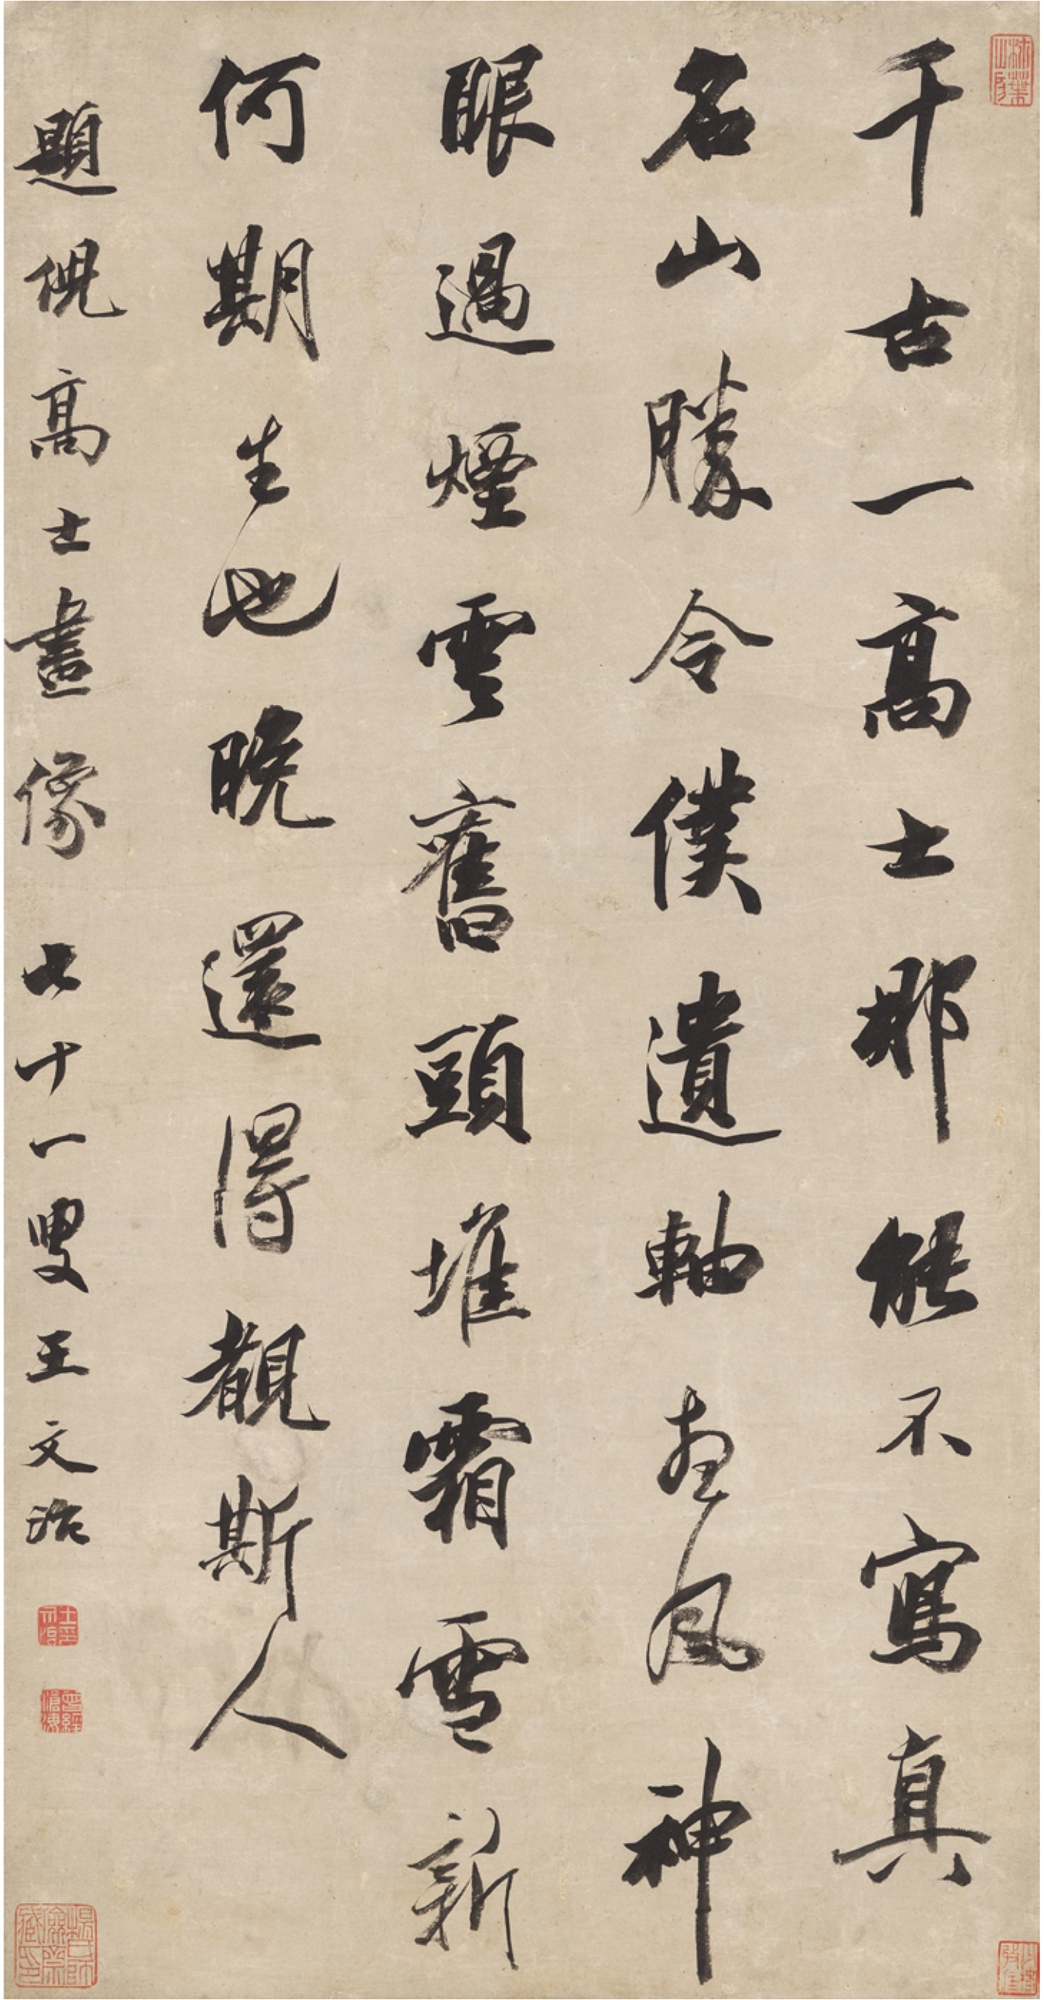 千古一高士那能不寫真
名山勝令僕遺軸想風神
眼過煙雲舊頭堆霜雪新
何期生也晚還得覩斯人
題倪高士畫像 七十一叟王文治
曾經滄海